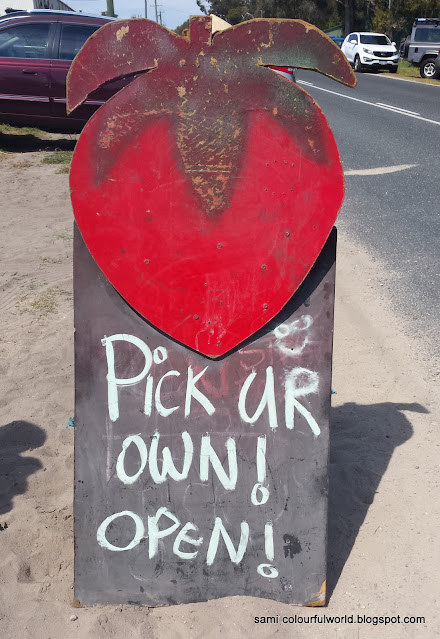 Pick UR
OWN!
OPEN!
sami-colourfulworld.blogspot.com